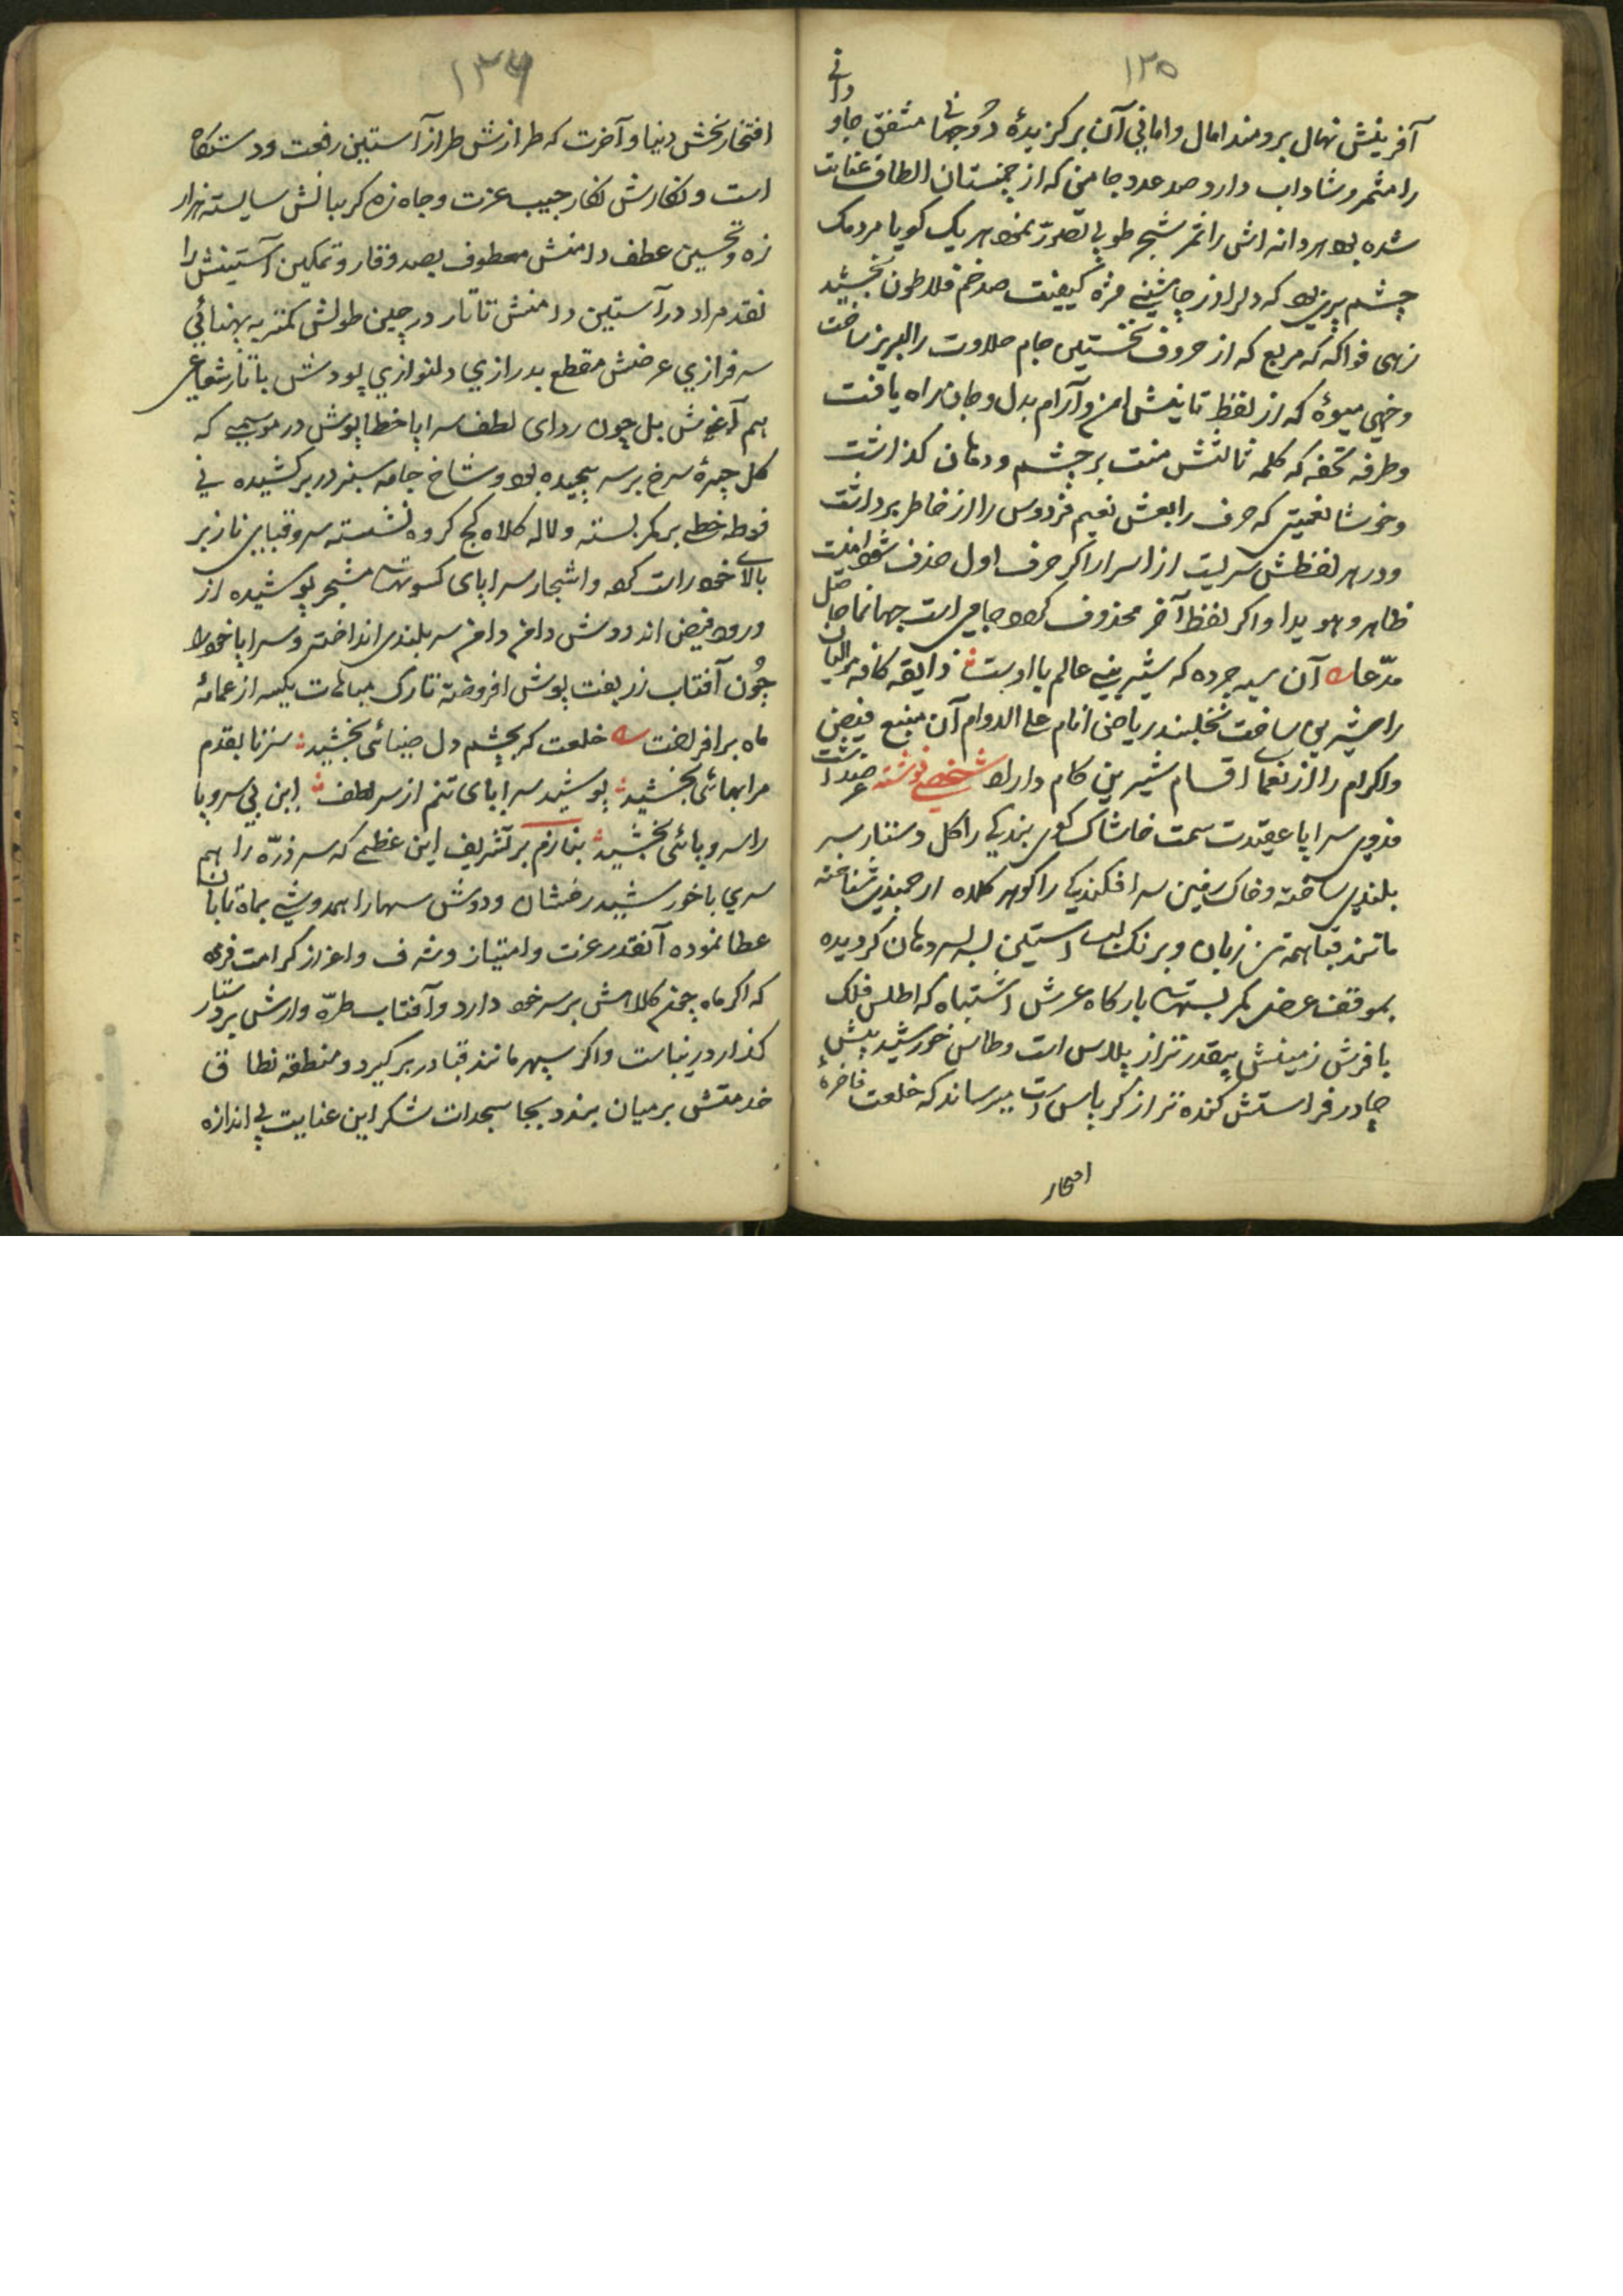 ۱۳۵
آفرینش نهال برومند امال و امانی آن برگزیدهٔ دوجهانی مثفق جاودانے
را مثمر و شاداب دارد صد عدد جامن که از چمنستان الطاف عنایت
شده بود هر دانه اش را ثمر شجر طوبی تصور نمود هر یک گویا مردمک
چشم پری بود که دل را از چاشنی مزهٔ کیفیت صد خم فلاطون بخشید
زهی فواکه که مربع که از حروف نخستین جام حلاوت را لبریز ساخت
و خهی میوهٔ که از لفظ تانیش امن و آرام بدل و جان راه یافت
و طرفه تحفه که کلمه ثالثش منت بر چشم و دهان گذاشت
و خوشا نعمتی که حرف رابعش نعیم فردوس را از خاطر برداشت
و در هر لفظش سریست از اسرار اگر حرف اول حذف شود امنیت
ظاهر و هویدا و اگر لفظ آخر محذوف گردد جامی است جهان نما حاصل
مدعا آن سیه چرده که شیرینی عالم با اوست ذایقه کافه
را شیرین ساخت نخلبند ریاض انام علی الدوام آن منبع فیض
و اکرام را از نعمای اقسام شیرین کام داراد شخصے نوشته
فدوی سراپا عقیدت سمت خاشاک کوی بندگی را گل دستار سر
بلندی ساخته و خاک زمین سرافکندگی را گوهر کلاه ارجمندی شناخته
مانند قبا همه تن زبان و برنگ آستین لب سر دهان گردیده
بموقف عرض کمر بستهای بارگاه عرش اشتباه که اطلس فلک
با فرش زمینش بیقدرتر از پلاس است و طاس خورشید پیش
چادر فراستش کنده تر از کرباس است میرساند که خلعت فاخرهٔ
افتخار
۱۳۶
افتخار بخش دنیا و آخرت که طرازش طراز آستین رفعت و دستگاه
است و نگارش نگار جیب عزت و جاه زه گریبانش شایسته هزار
زه و تحسین عطف دامنش معطوف بصد وقار و تمکین آستینش را
نقد مراد در آستین دامنش تا تار در چین طولش کمتر به پهنائی
سرفرازی عرضش مقطع بدرازی دلنوازی پودش با تار شعاعی
هم آغوش بل چون ردای لطف سراپا خطاپوش در موسمے که
گل چیرهٔ سرخ بر سر پیچیده بود و شاخ جامه سبز در بر کشیده نی
فوطه خطی بر کمر بسته و لاله کلاه کج کرده نشسته سرو قبای ناز بر
بالای خود راست کرد و اشجار سراپای کسوت مشجر پوشیده از
ورود فیض اندودش دامن دامن سربلندی انداختم و سراپا خود را
چون آفتاب زربفت پوش افروخته تارک مباهات یکسر از عمامهٔ
ماه برافراخت خلعت که بچشم دل ضیائی بخشید سر تا بقدم
مرا بهائی بخشید پوشید سراپای تنم از سر لطف این بی سر و پا
را سر و پائی بخشید بنازم بر تشریف این عظمی که سر ذره را هم
سری با خورشید رخشان و دوش سها را همدوشی بماه تابان
عطا نموده آنقدر عزت و امتیاز و شرف و اعزاز کرامت فرمود
که اگر ماه چتر کلاهش بر سر خود دارد و آفتاب طره وارش بر دستار
گذارد زیباست و اگر سپهر مانند قبا در بر گیرد و منطقه نطاق
خدمتش بر میان بندد بجا سجدات شکر این عنایت بی اندازه